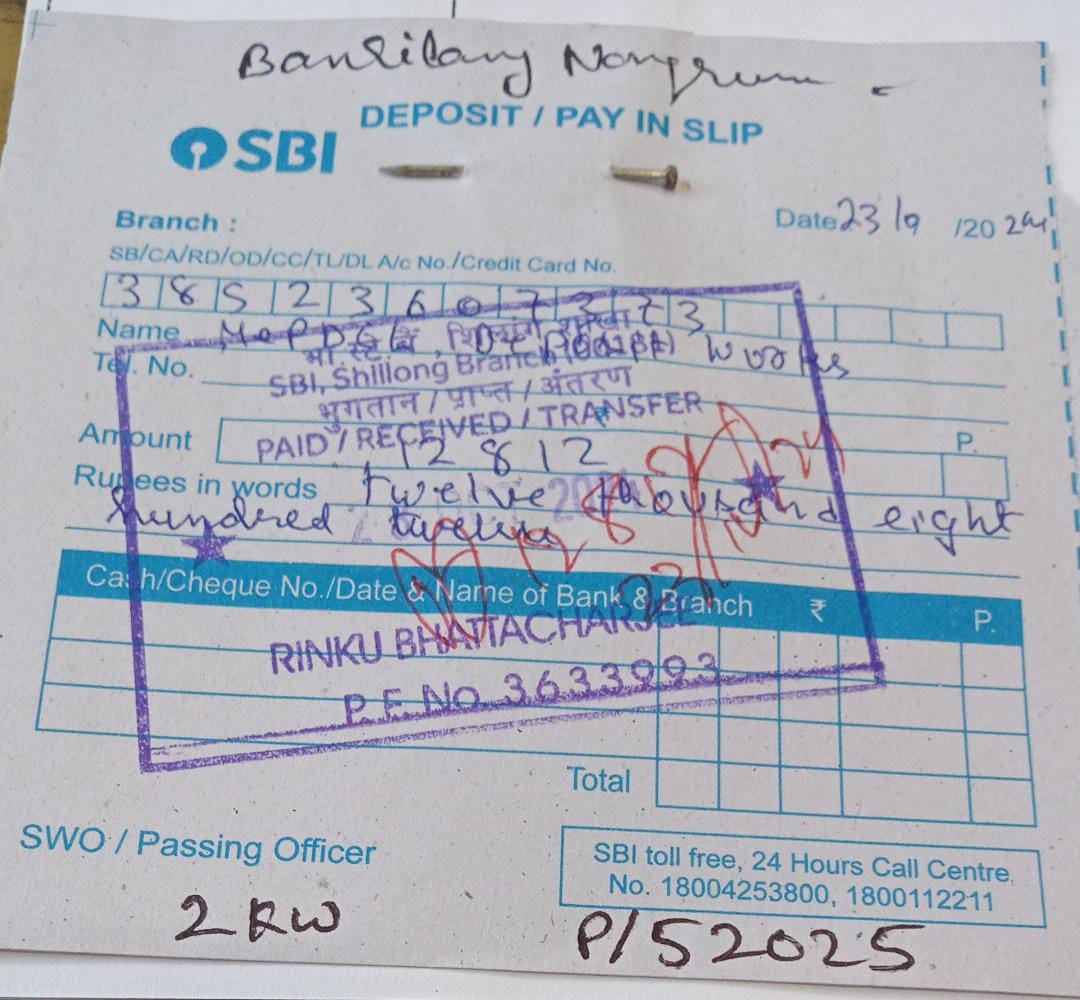 DEPOSIT / PAY IN SLIP
SBI
Branch :
Date 23/9 /20 24
SB/CA/RD/OD/CC/TL/DL A/c No./Credit Card No.
3 8 5 2 3 6 0 7 3 7 3
Name MePDCL, Works
भा. स्टे. बैं., शिलांग शाखा
Tel. No.
SBI, Shillong Branch
भुगतान / प्राप्त / अंतरण
PAID / RECEIVED / TRANSFER
Amount 12812 P.
Rupees in words twelve thousand eight
hundred twelve
Cash/Cheque No./Date & Name of Bank & Branch ₹ P.
RINKU BHATTACHARJEE
P. F. No. 3633993
Total
SWO / Passing Officer
SBI toll free, 24 Hours Call Centre.
No. 18004253800, 1800112211
2 KW
P/52025